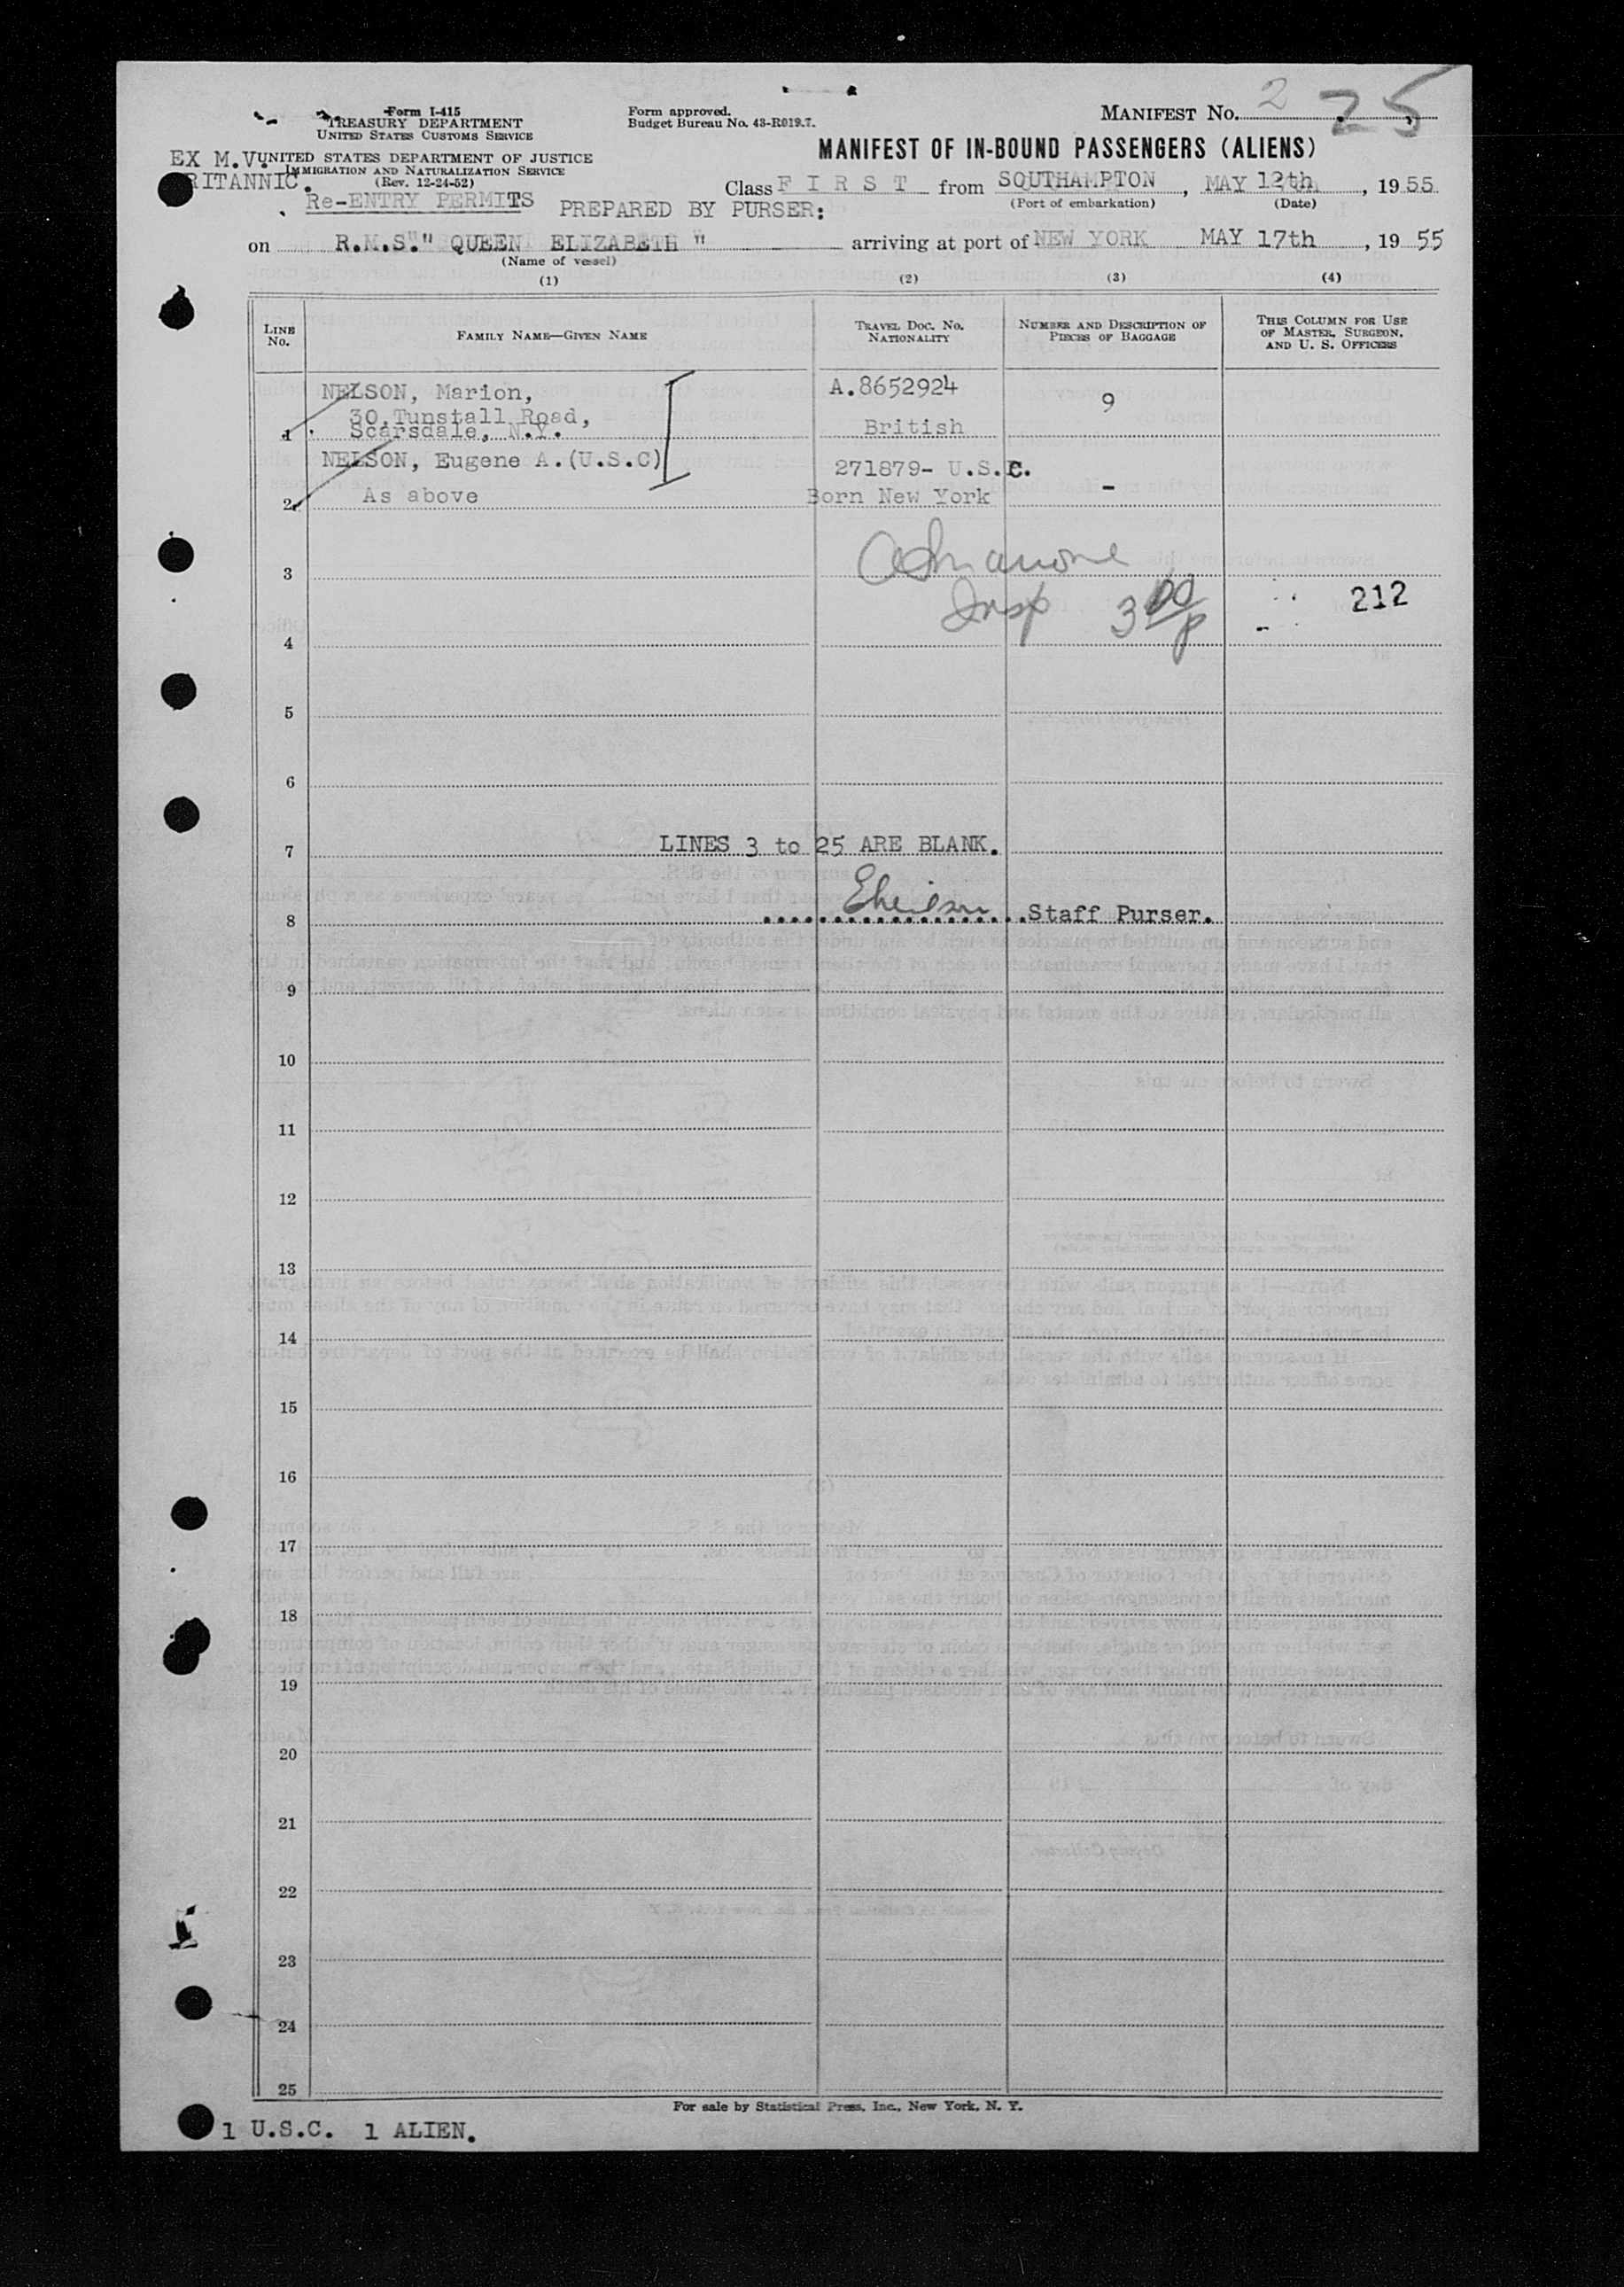 Form I-415
TREASURY DEPARTMENT
UNITED STATES CUSTOMS SERVICE
Form approved.
Budget Bureau No. 43-R019.7.
MANIFEST No. 2 25
EX M.V. UNITED STATES DEPARTMENT OF JUSTICE
RITANNIC. IMMIGRATION AND NATURALIZATION SERVICE
(Rev. 12-24-52)
MANIFEST OF IN-BOUND PASSENGERS (ALIENS)
Re-ENTRY PERMITS PREPARED BY PURSER:
Class FIRST from SOUTHAMPTON, MAY 12th, 1955
(Port of embarkation) (Date)
on R.M.S." QUEEN ELIZABETH " arriving at port of NEW YORK MAY 17th, 19 55
(Name of vessel)
(1) (2) (3) (4)
LINE No. FAMILY NAME—GIVEN NAME TRAVEL DOC. NO. NATIONALITY NUMBER AND DESCRIPTION OF PIECES OF BAGGAGE THIS COLUMN FOR USE OF MASTER, SURGEON, AND U. S. OFFICERS
NELSON, Marion, A.8652924
30,Tunstall Road, 9
1 Scarsdale, N.Y. British
NELSON, Eugene A.(U.S.C) 271879- U.S.C.
2 As above Born New York -
3
Insp 3 00/p 212
4
5
6
7 LINES 3 to 25 ARE BLANK.
8 Staff Purser.
9
10
11
12
13
14
15
16
17
18
19
20
21
22
23
24
25
For sale by Statistical Press, Inc., New York, N. Y.
1 U.S.C. 1 ALIEN.